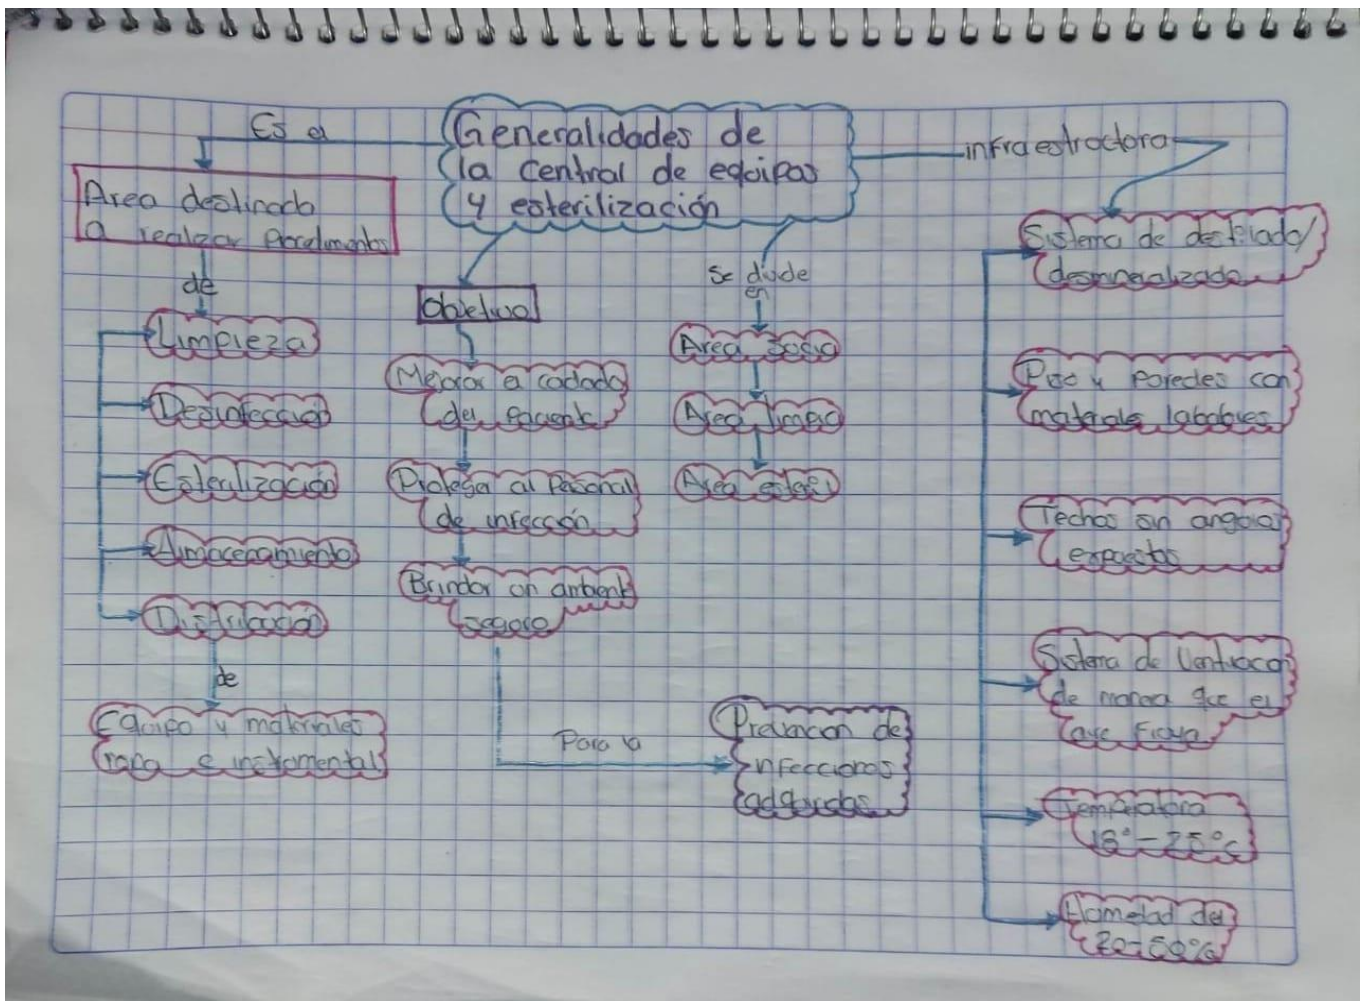 Generalidades de
la Central de equipos
y esterilización
Es el
Area destinada
a realizar
de
Limpieza
Desinfección
Esterilización
Almacenamiento
Distribución
de
Equipo y materiales
ropa e instrumental
Objetivo
Mejorar el cuidado
del Pacient
Proteger al Personal
de infección
Brindar un ambient
seguro
Para la
Prevencion de
Infecciones
adquiridas
Se divide
en
Area Sucia
Area limpia
Area esteril
infraestructura
Sistema de destilado/
desmineralizado
Piso y Paredes con
materiales lababies
Techos sin angulos
expuestos
Sistema de
de manera que el
aire Fluya
Temperatura
18°-25°c
Humedad del